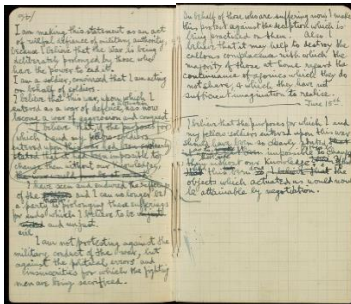 I am making this statement as an act
of wilful defiance of military authority,
because I believe that the War is being
deliberately prolonged by those who
have the power to end it.
I am a soldier, convinced that I am acting
on behalf of soldiers.
I believe that this war, upon which I
entered as a war of defence, has now
become a war of aggression and conquest
I believe that the purposes for
which I and my fellow-soldiers
entered upon this war had been
stated that it
change them without our knowledge,
I have seen and endured the sufferings
of the and I can no longer be
a party to prolonging those sufferings
for ends which I believe to be
evil and unjust.
I am not protesting against the
military conduct of the war, but
against the political errors and
insincerities for which the fighting
men are being sacrificed.
On behalf of those who are suffering now, I make
this protest against the deception which is
being practised on them. Also I
believe that it may help to destroy the
callous complacence with which the
majority of those at home regard the
continuance of agonies which they do
not share, & which they have not
sufficient imagination to realise.
June 15th
I believe that the purposes for which I and
my fellow soldiers entered upon this war
should have been so clearly stated
impossible to change
them without our knowledge,
this been the
objects which actuated us would now
be attainable by negotiation.